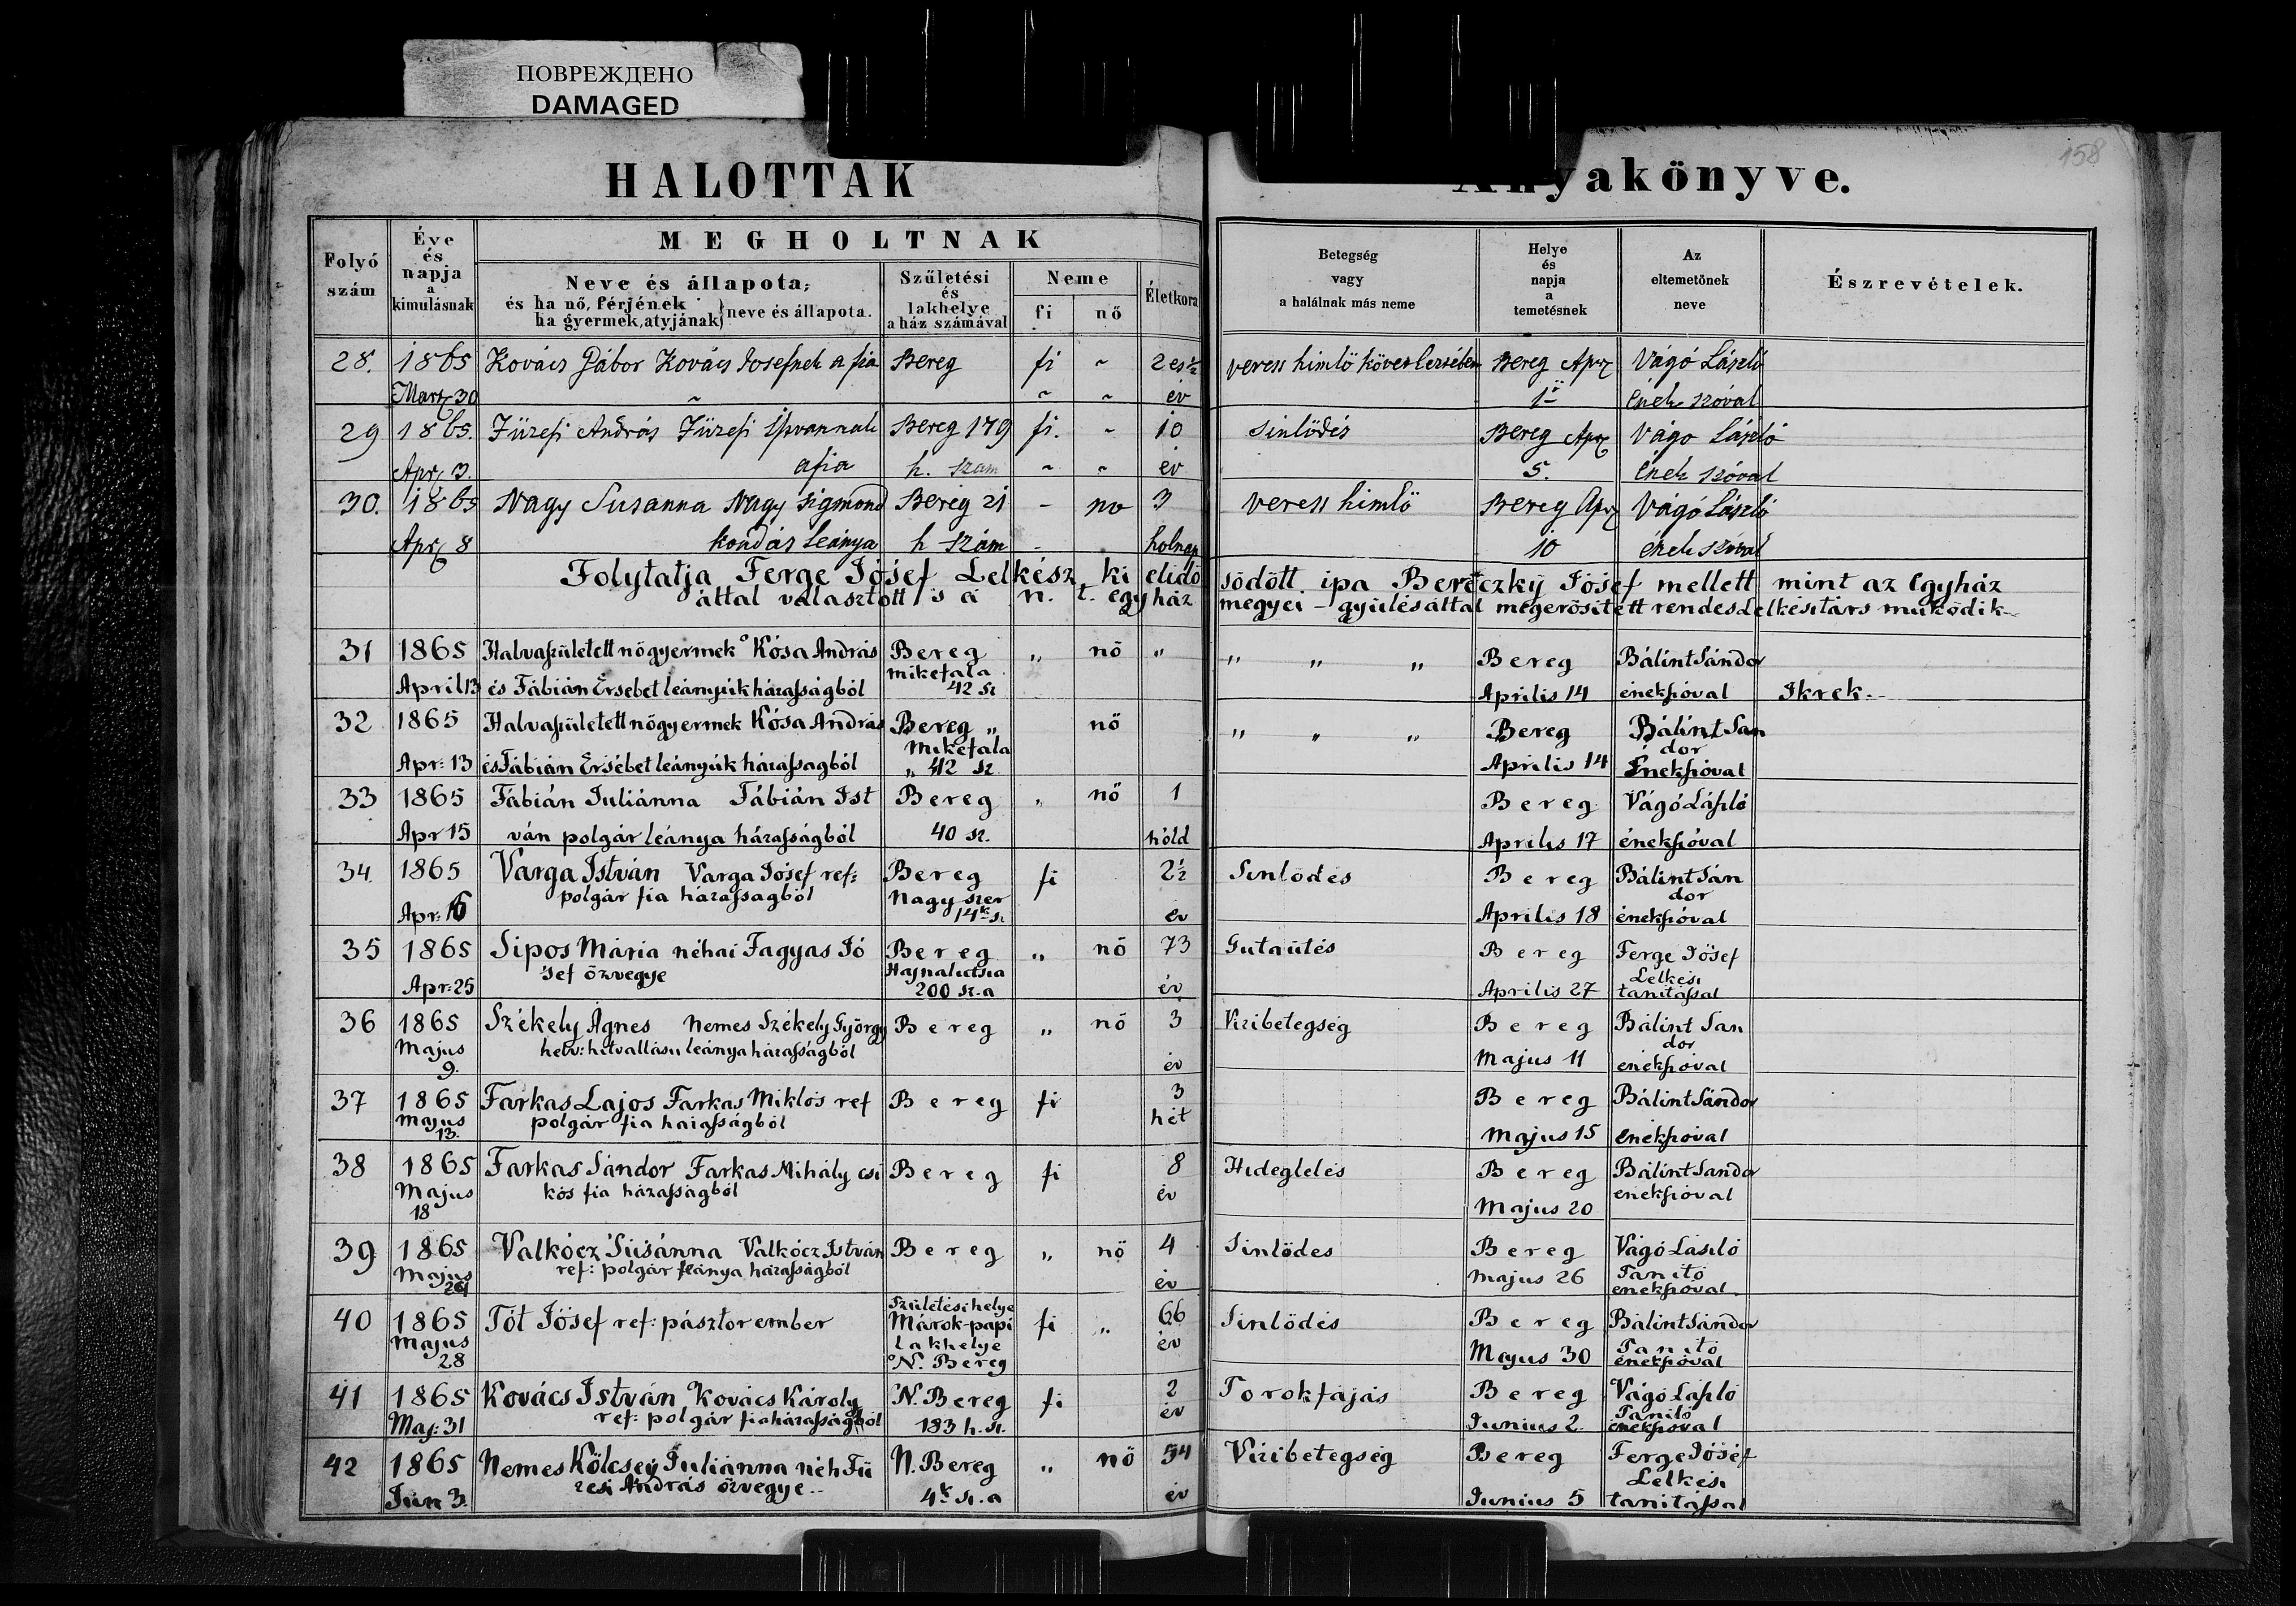 ПОВРЕЖДЕНО
DAMAGED
158
HALOTTAK
Anyakönyve.
Folyó szám
Éve és napja a kimulásnak
MEGHOLTNAK
Neve és állapota;
és ha nő, férjének
ha gyermek, atyjának} neve és állapota.
Születési és lakhelye a ház számával
Neme
fi
nő
Életkora
Betegség vagy a halálnak más neme
Helye és napja a temetésnek
Az eltemetőnek neve
Észrevételek.
28. 1865 Kovács Gábor Kovács Josefnek a fia Bereg fi ~ 2 es ½ veress himlö Bereg Apr Vágó László
Mart 30 ~ ~ ~ év 1 Ének szóval
29 1865. Füzesi András Füzesi Istvannak Bereg 179 fi. ~ 10 Sinlödés Bereg Apr Vágo László
Apr 3. a fia h. szam ~ ~ év 5. Ének szóval
30. 1865 Nagy Susanna Nagy Sigmond Bereg 21 - no 3 veress himlö Bereg Apr Vágó László
Apr 8 kondás leánya h szám - holnap 10 ének szóval
Folytatja Ferge Jósef Lelkész, ki elidösödött ipa Bereczky Jósef mellett mint az Egyház
által választott s a n. t. egyház megyei-gyülés által megerösitett rendes Lelkésitárs müködik
31 1865 Halvaszületett nögyermek Kósa András Bereg „ nö „ „ „ „ Bereg Bálint Sándor
April 13 és Fábián Ersebet leányúk házasságból mikefala 42 sz Aprilis 14 énekszóval Ikrek.
32 1865 Halvaszületett nögyermek Kósa András Bereg „ nö „ „ „ Bereg Bálint San
dor
Apr: 13 és Fábián Ersébet leányúk házassagból Mikefala „ 42 sz. Aprilis 14 Énekszóval
33 1865 Fábián Juliánna Fábián Ist Bereg „ nö 1 Bereg Vágó László
Apr 15 ván polgár leánya házasságból 40 sz. hóld Aprilis 17 énekszóval
34. 1865 Varga István Varga Jósef ref: Bereg fi 2½ Sinlödés Bereg Bálint Sán
polgár fia házassagból Nagy szer dor
Apr: 16 14k sz ev Aprilis 18 énekszóval
35 1865 Sipos Mária néhai Fagyas Jó Bereg „ nö 73 Gutaütés Bereg Ferge Jósef
sef özvegye Hajnalutsza Lelkési
Apr: 25 200 sz. a év Aprilis 27 tanitással
36 1865 Székely Ágnes Nemes Székely György Bereg „ nö 3 Vizibetegség Bereg Bálint San
Majus helv: hitvallásu leánya házasságból dor
9. év Majus 11 énekszóval
37 1865 Farkas Lajos Farkas Miklós ref Bereg fi 3 Bereg Bálint Sándor
Majus polgár fia házasságból hét
13. Majus 15 énekszóval
38 1865 Farkas Sándor Farkas Mihály csi Bereg fi 8 Hideglelés Bereg Bálint Sandor
Majus kós fia házasságból év énekszóval
18 Majus 20
39 1865 Valkócz Susánna Valkócz István Bereg „ nö 4 Sinlödes Bereg Vágó László
Majus ref: polgár leánya házasságból Majus 26 Tanito
év énekszóval
40 1865 Tót Jósef ref: pásztor ember Születési helye Márok-papi fi „ 66 Sinlödés Bereg Bálint Sándor
Majus lakhelye év Tanitó
28 N. Bereg Majus 30 énekszóval
41 1865 Kovács István Kovács Károly N. Bereg fi 2 Torokfájás Bereg Vágó László
ref: polgár fia házasságból év Tanitó
Maj: 31 183 h. sz. Junius 2. énekszóval
42 1865 Nemes Kölcsey Juliánna néh Fü N. Bereg „ nö 54 Vizibetegség Bereg Ferge Jósef
zesi András özvegye Lelkési
Jun 3. 4k sz. a év Junius 5 tanitással